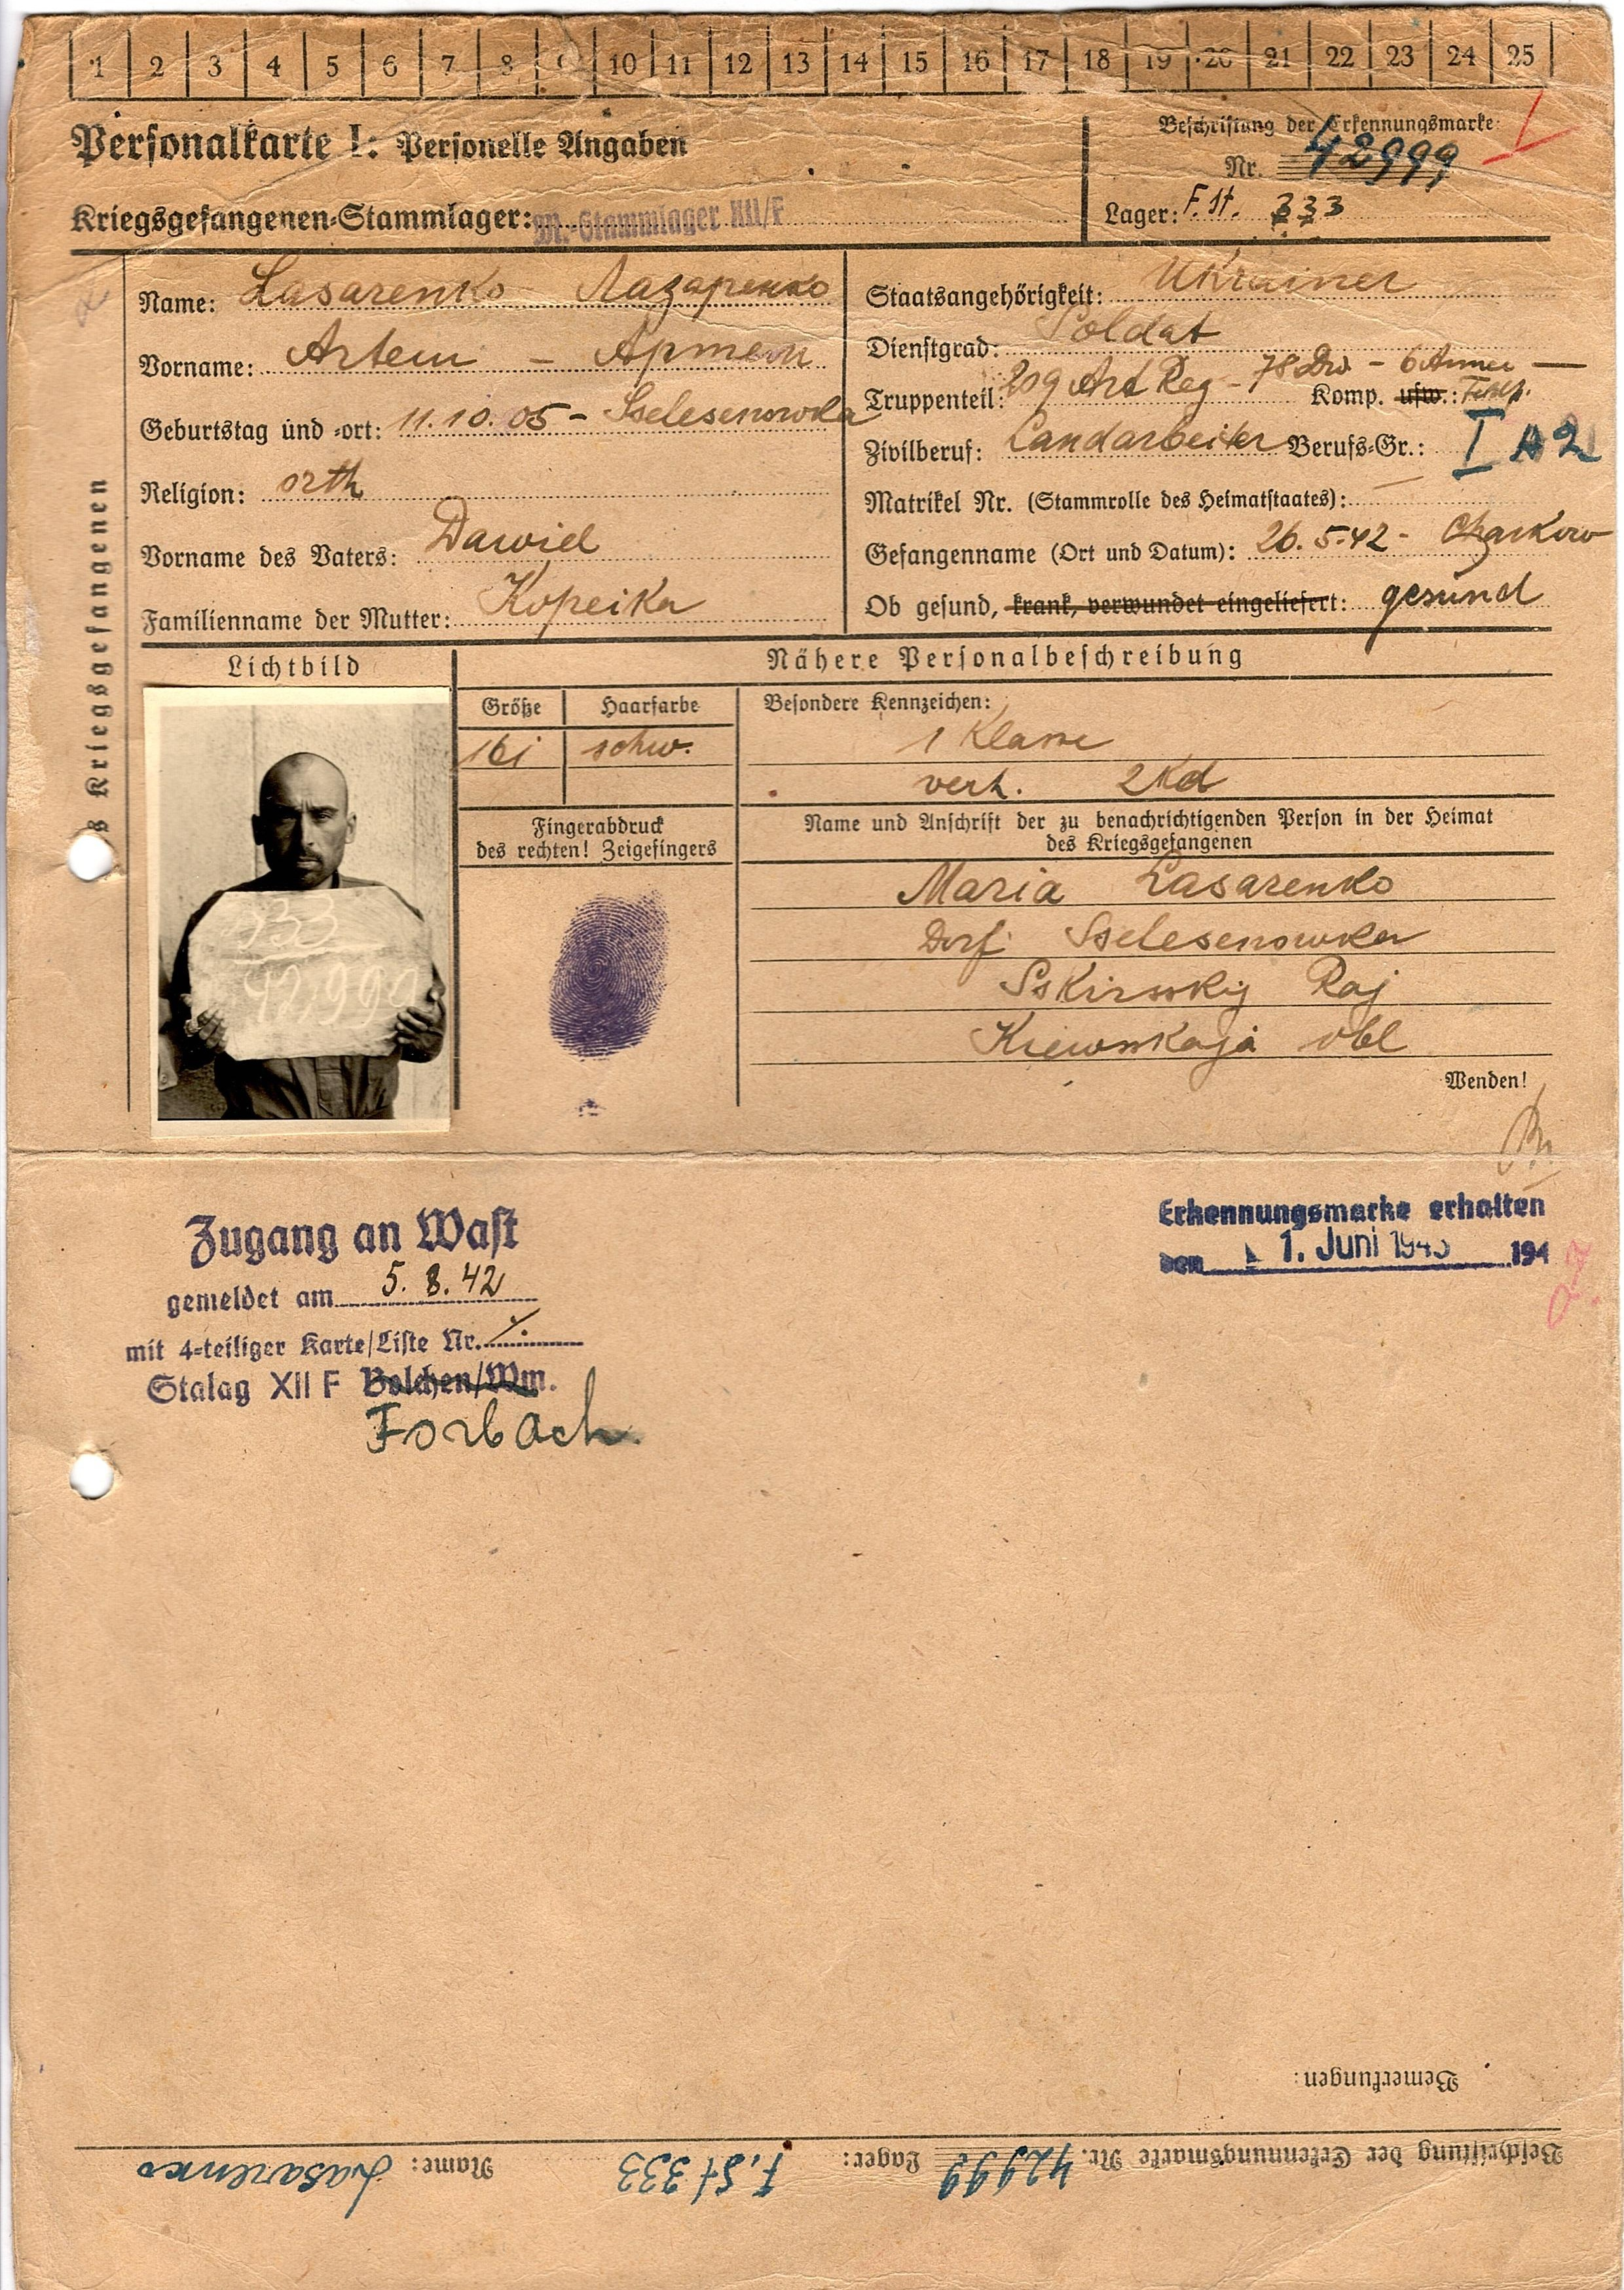 1 2 3 4 5 6 7 8 9 10 11 12 13 14 15 16 17 18 19 20 21 22 23 24 25
Personalkarte I: Personelle Angaben
Kriegsgefangenen-Stammlager: M.-Stammlager XII/F
Beschriftung der Erkennungsmarke
Nr. 42999
Lager: F. St. 333
Name: Lasarenko Лазаренко
Vorname: Artem – Артем
Geburtstag und -ort: 11.10.05 – Sselesenowka
Religion: orth
Vorname des Vaters: Dawid
Familienname der Mutter: Kopeika
Staatsangehörigkeit: Ukrainer
Dienstgrad: Soldat
Truppenteil: 209 Art Reg – 78 Div – 6 Armee — Komp. usw.:
Zivilberuf: Landarbeiter Berufs-Gr.: I A2
Matrikel Nr. (Stammrolle des Heimatstaates): —
Gefangenname (Ort und Datum): 26.5.42 – Charkow
Ob gesund, krank, verwundet eingeliefert: gesund
s Kriegsgefangenen
Lichtbild
Nähere Personalbeschreibung
Größe Haarfarbe
161 schw.
Besondere Kennzeichen:
1 Klasse
verh. 2 Kd
Fingerabdruck
des rechten! Zeigefingers
Name und Anschrift der zu benachrichtigenden Person in der Heimat
des Kriegsgefangenen
Maria Lasarenko
Dorf Sselesenowka
Sskirsskij Raj
Kiewsskaja obl
Wenden!
333
42999
Zugang an Wast
gemeldet am 5. 8. 42
mit 4-teiliger Karte/Liste Nr.
Stalag XII F Bolchen/Wm.
Forbach
Erkennungsmarke erhalten
den 1. Juni 1943 194
Bemerkungen:
Beschriftung der Erkennungsmarke Nr. 42999 Lager: F. St 333 Name: Lasarenko